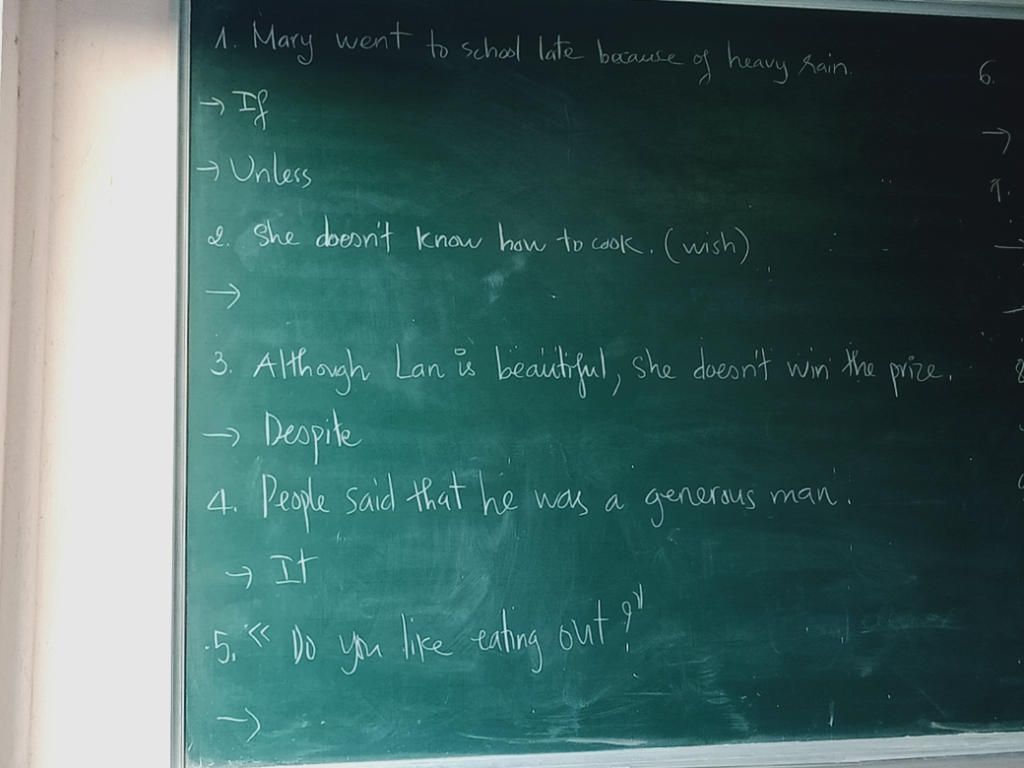 1. Mary went to school late because of heavy rain.
→ If
→ Unless
2. She doesn't know how to cook. (wish)
→
3. Although Lan is beautiful, she doesn't win the prize.
→ Despite
4. People said that he was a generous man.
→ It
5. "Do you like eating out?"
→
6.
→
7.
→